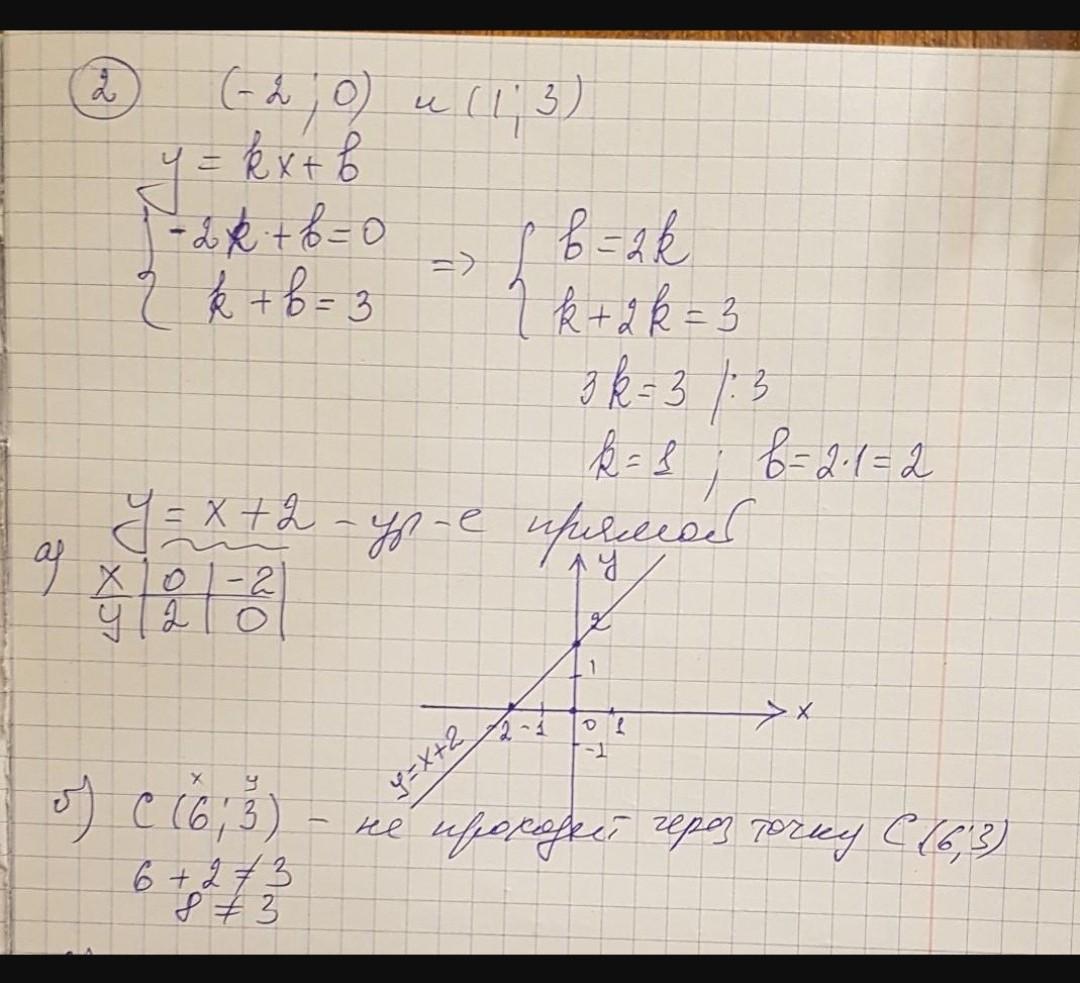 2 (-2; 0) и (1; 3)
y = kx + b
{ -2k + b = 0 => { b = 2k
k + b = 3 k + 2k = 3
3k = 3 |:3
k = 1 ; b = 2·1 = 2
y = x + 2 - ур-е прямой
а) x | 0 | -2 |
y | 2 | 0 |
y
2
1
-2 -1 0 1 x
-1
y=x+2
x y
б) C (6; 3) - не проходит через точку C (6; 3)
6 + 2 ≠ 3
8 ≠ 3